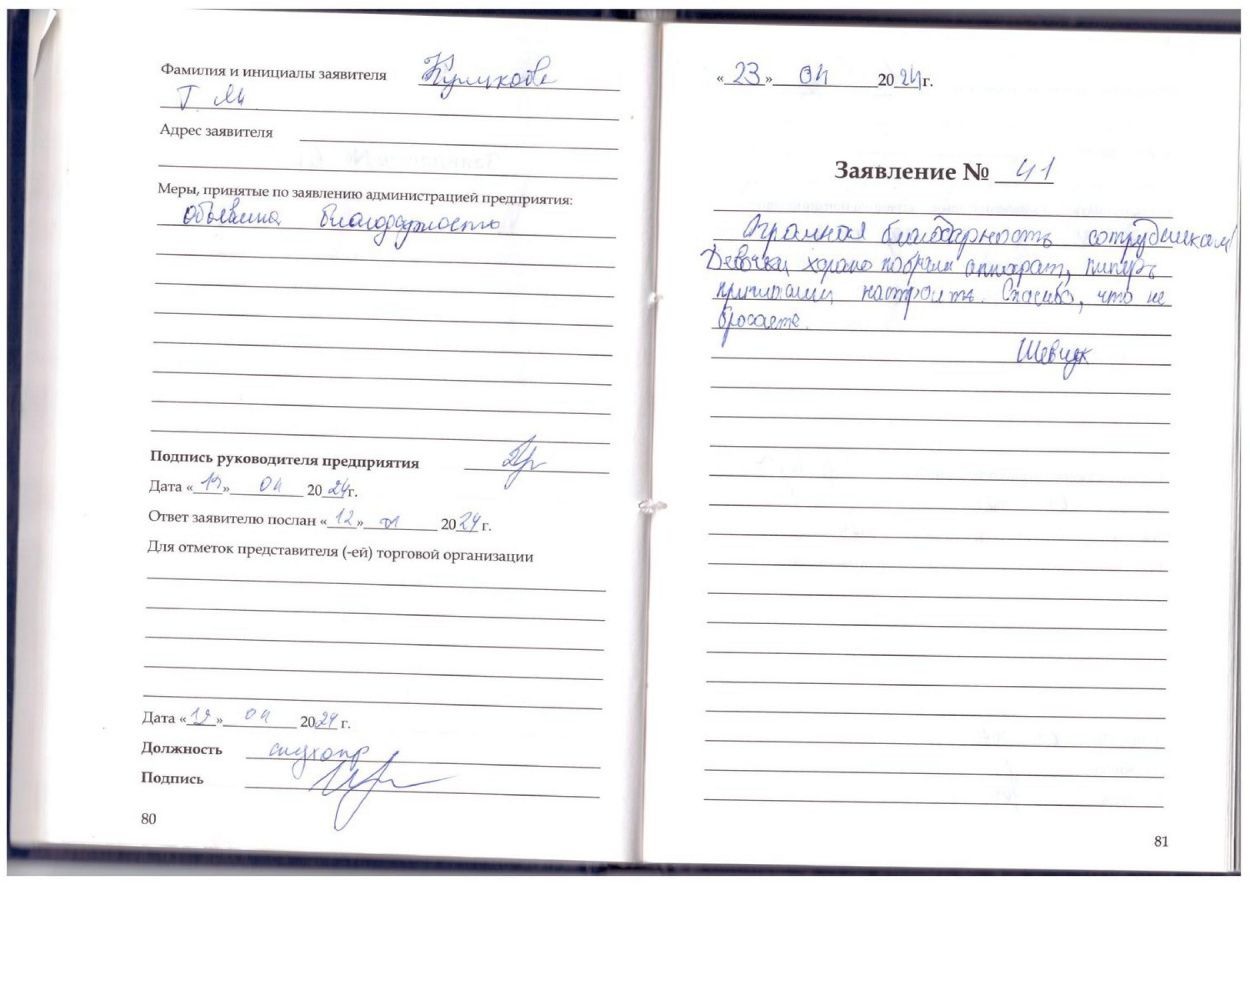 Фамилия и инициалы заявителя
Т М
Адрес заявителя
Меры, принятые по заявлению администрацией предприятия:
Объявлена благодарность
Подпись руководителя предприятия
Дата « » 04 2024г.
Ответ заявителю послан «12» 04 2024 г.
Для отметок представителя (-ей) торговой организации
Дата « » 04 2024 г.
Должность слухопр
Подпись
80
«23» 04 2024г.
Заявление № 41
Огромная благодарность сотрудникам!
Девочки хорошо подобрали аппарат, теперь
приглашали настроить. Спасибо, что не
бросаете.
Шевчук
81